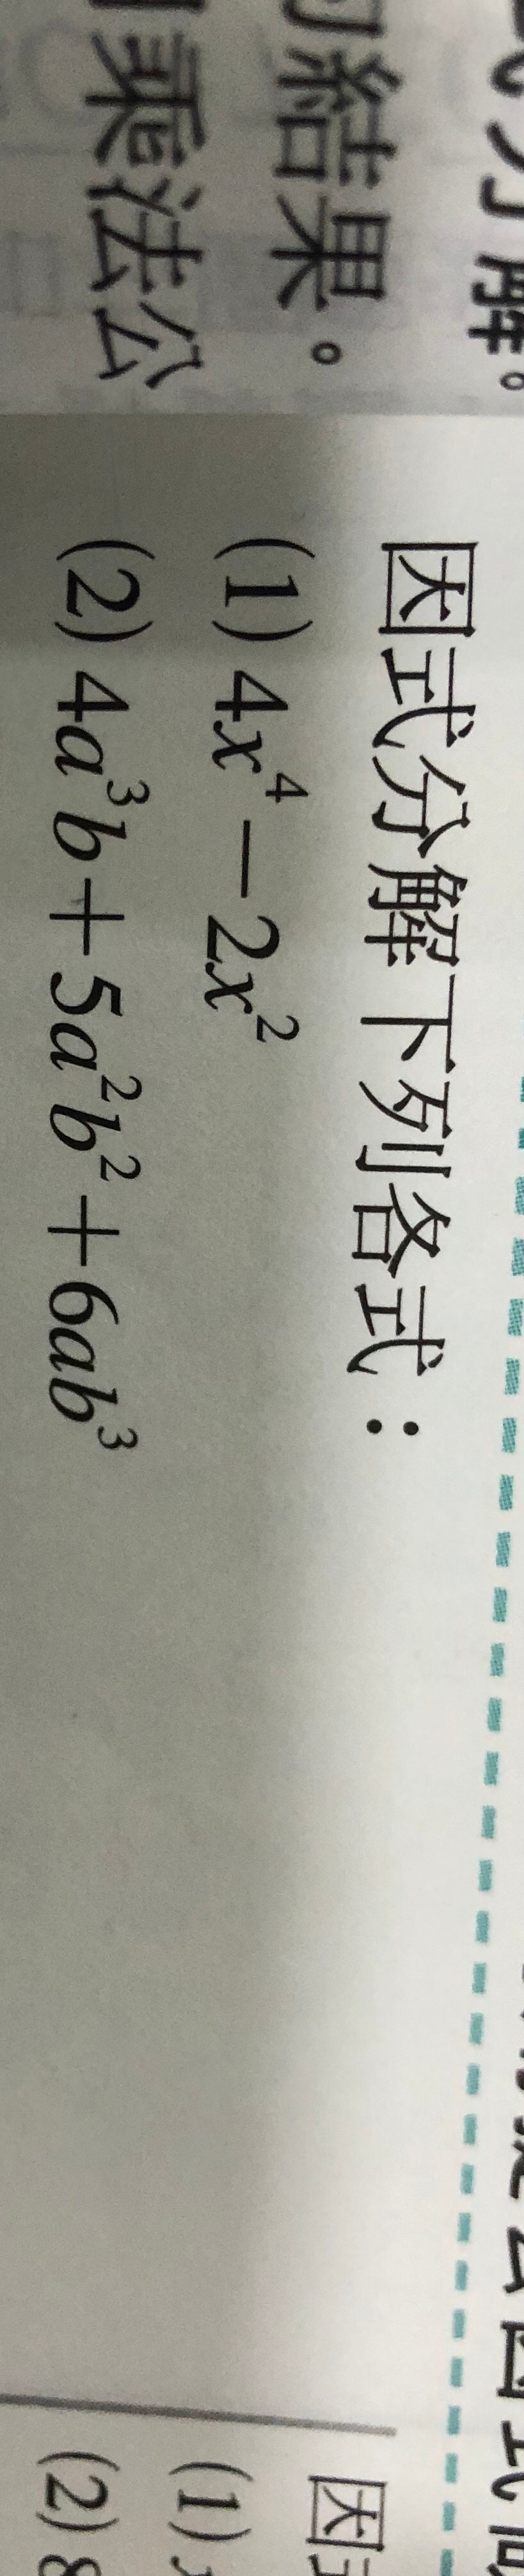 分解。
結果。
乘法公
因式分解下列各式：
(1) 4x⁴－2x²
(2) 4a³b＋5a²b²＋6ab³
因
(1)
(2) 8